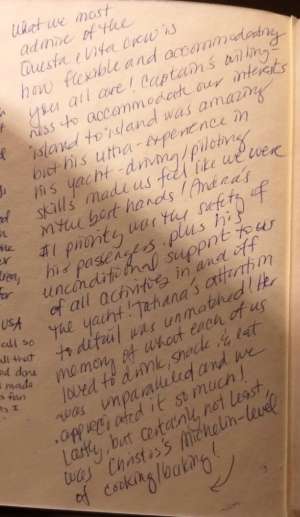 What we most
admire of the
Questa e Vita crew is
how flexible and accommodating
you all are! Captain's willing-
ness to accommodate our interests
island to island was amazing
but his ultra-experience in
his yacht-driving/piloting
skills made us feel like we were
in the best hands! Andrea's
#1 priority was the safety of
his passengers, plus his
unconditional support to us
of all activities in and off
the yacht! Tatiana's attention
to detail was unmatched! Her
memory of what each of us
loved to drink, snack, & eat
was unparalleled and we
appreciated it so much!
Lastly, but certainly not least,
was Christos's Michelin-level
of cooking/baking!
USA
call so
all that
made